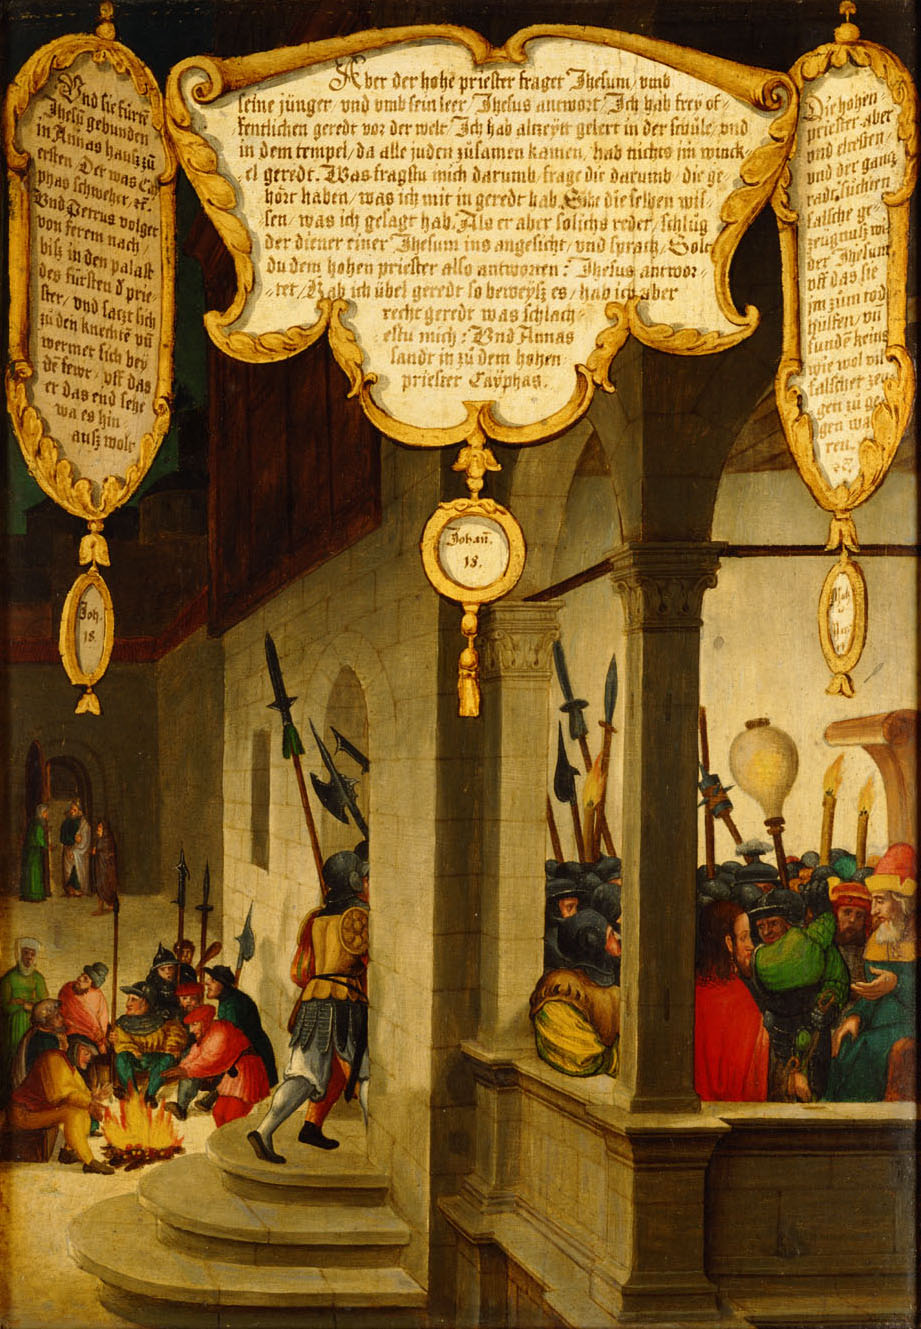 Vnd sie fürtē
Jhesū gebunden
in Annas hausz zů
ersten. Der was Ca
phas schweher, ꝛc.
Vnd Petrus volget
von ferem nach
bisz in den palast
des fürsten d prie⸗
ster, vnd satzt sich
zů den knechtē vn̄
wermet sich bey
dē fewr, vff das
er das end sehe
wa es hin
ausz wolt.
Joh.
18.
Aber der hohe priester fraget Jhesum, vmb
seine jünger, vnd vmb sein leer, Jhesus antwort, Ich hab frey of⸗
fentlichen geredt vor der welt, Ich hab altzeyt gelert in der schůle, vnd
in dem tempel, da alle juden zůsamen kamen, hab nichts im winck⸗
el geredt. Was fragstu mich darumb, frage die darumb, die ge⸗
hört haben, was ich mit in geredt hab, Sihe die selben wis⸗
sen, was ich gesagt hab, Als er aber solichs redet, schlůg
der diener einer Jhesum ins angesicht, vnd sprach, Solt
du dem hohen priester also antworten? Jhesus antwor⸗
tet, Hab ich übel geredt so beweysz es, hab ich aber
recht geredt was schlach⸗
estu mich? Vnd Annas
sandt in zů dem hohen
priester Cayphas.
Johan̄.
18.
Die hohen
priester aber
vnd eltesten
vnd der gantz
radt, sůchten
falsche ge⸗
zeugnusz wi
der Jhesum
vff das sie
jm zum tod
hülffen, vn̄
fundē keins
wie wol vil
falscher zeu
gen zů ge⸗
gen wa⸗
ren.